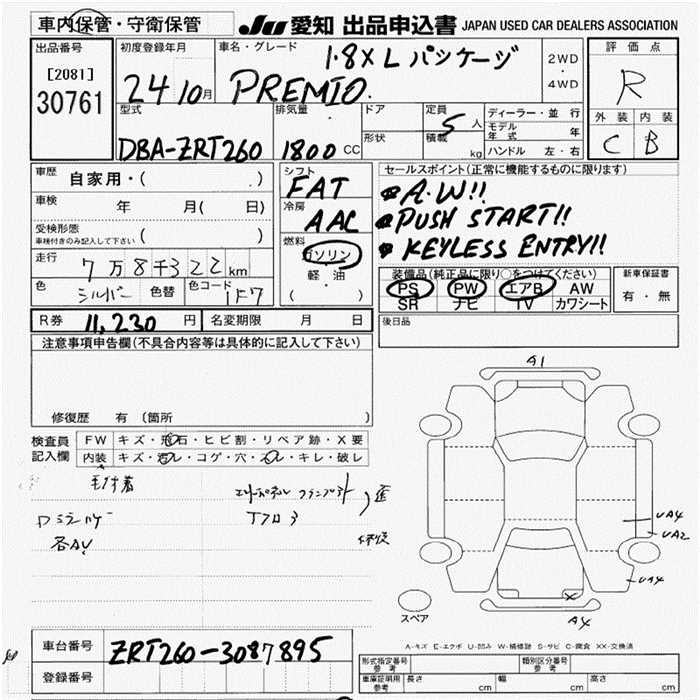 車内保管・守衛保管
JU 愛知 出品申込書 JAPAN USED CAR DEALERS ASSOCIATION
出品番号
[2081]
30761
初度登録年月
24 10月
車名・グレード
1.8X Lパッケージ
PREMIO
2WD
・
4WD
評価点
R
外装 内装
C B
型式
DBA-ZRT260
排気量
1800 cc
ドア
形状
定員
5 人
積載
kg
ディーラー・並行
モデル年式 年
ハンドル 左・右
車歴
自家用・( )
車検
年 月( 日)
受検形態
車検付きのみ記入して下さい ( )
走行
7万8千322km
色
シルバー
色替
色コード
1F7
シフト
FAT
冷房
AAC
燃料
ガソリン
・
軽・油
( )
セールスポイント(正常に機能するものに限ります)
A.W!!
PUSH START!!
KEYLESS ENTRY!!
装備品(純正品に限り○をつけてください)
PS PW エアB AW
SR ナビ TV カワシート
新車保証書
有・無
後日品
R券 11,230 円
名変期限 月 日
注意事項申告欄(不具合内容等は具体的に記入して下さい)
修復歴 有 〔箇所
検査員
記入欄
FW キズ・飛石・ヒビ割・リペア跡・X要
内装 キズ・汚レ・コゲ・穴・スレ・キレ・破レ
各AU
A1
UA4
UA2
UA4
A4
スペア
A-キズ E-エクボ U-凹み W-補修跡 S-サビ C-腐食 XX-交換済
車台番号
ZRT260-3087895
登録番号
形式指定番号
参考
類別区分番号
参考
車庫証明用
参考
長さ cm
幅 cm
高さ cm